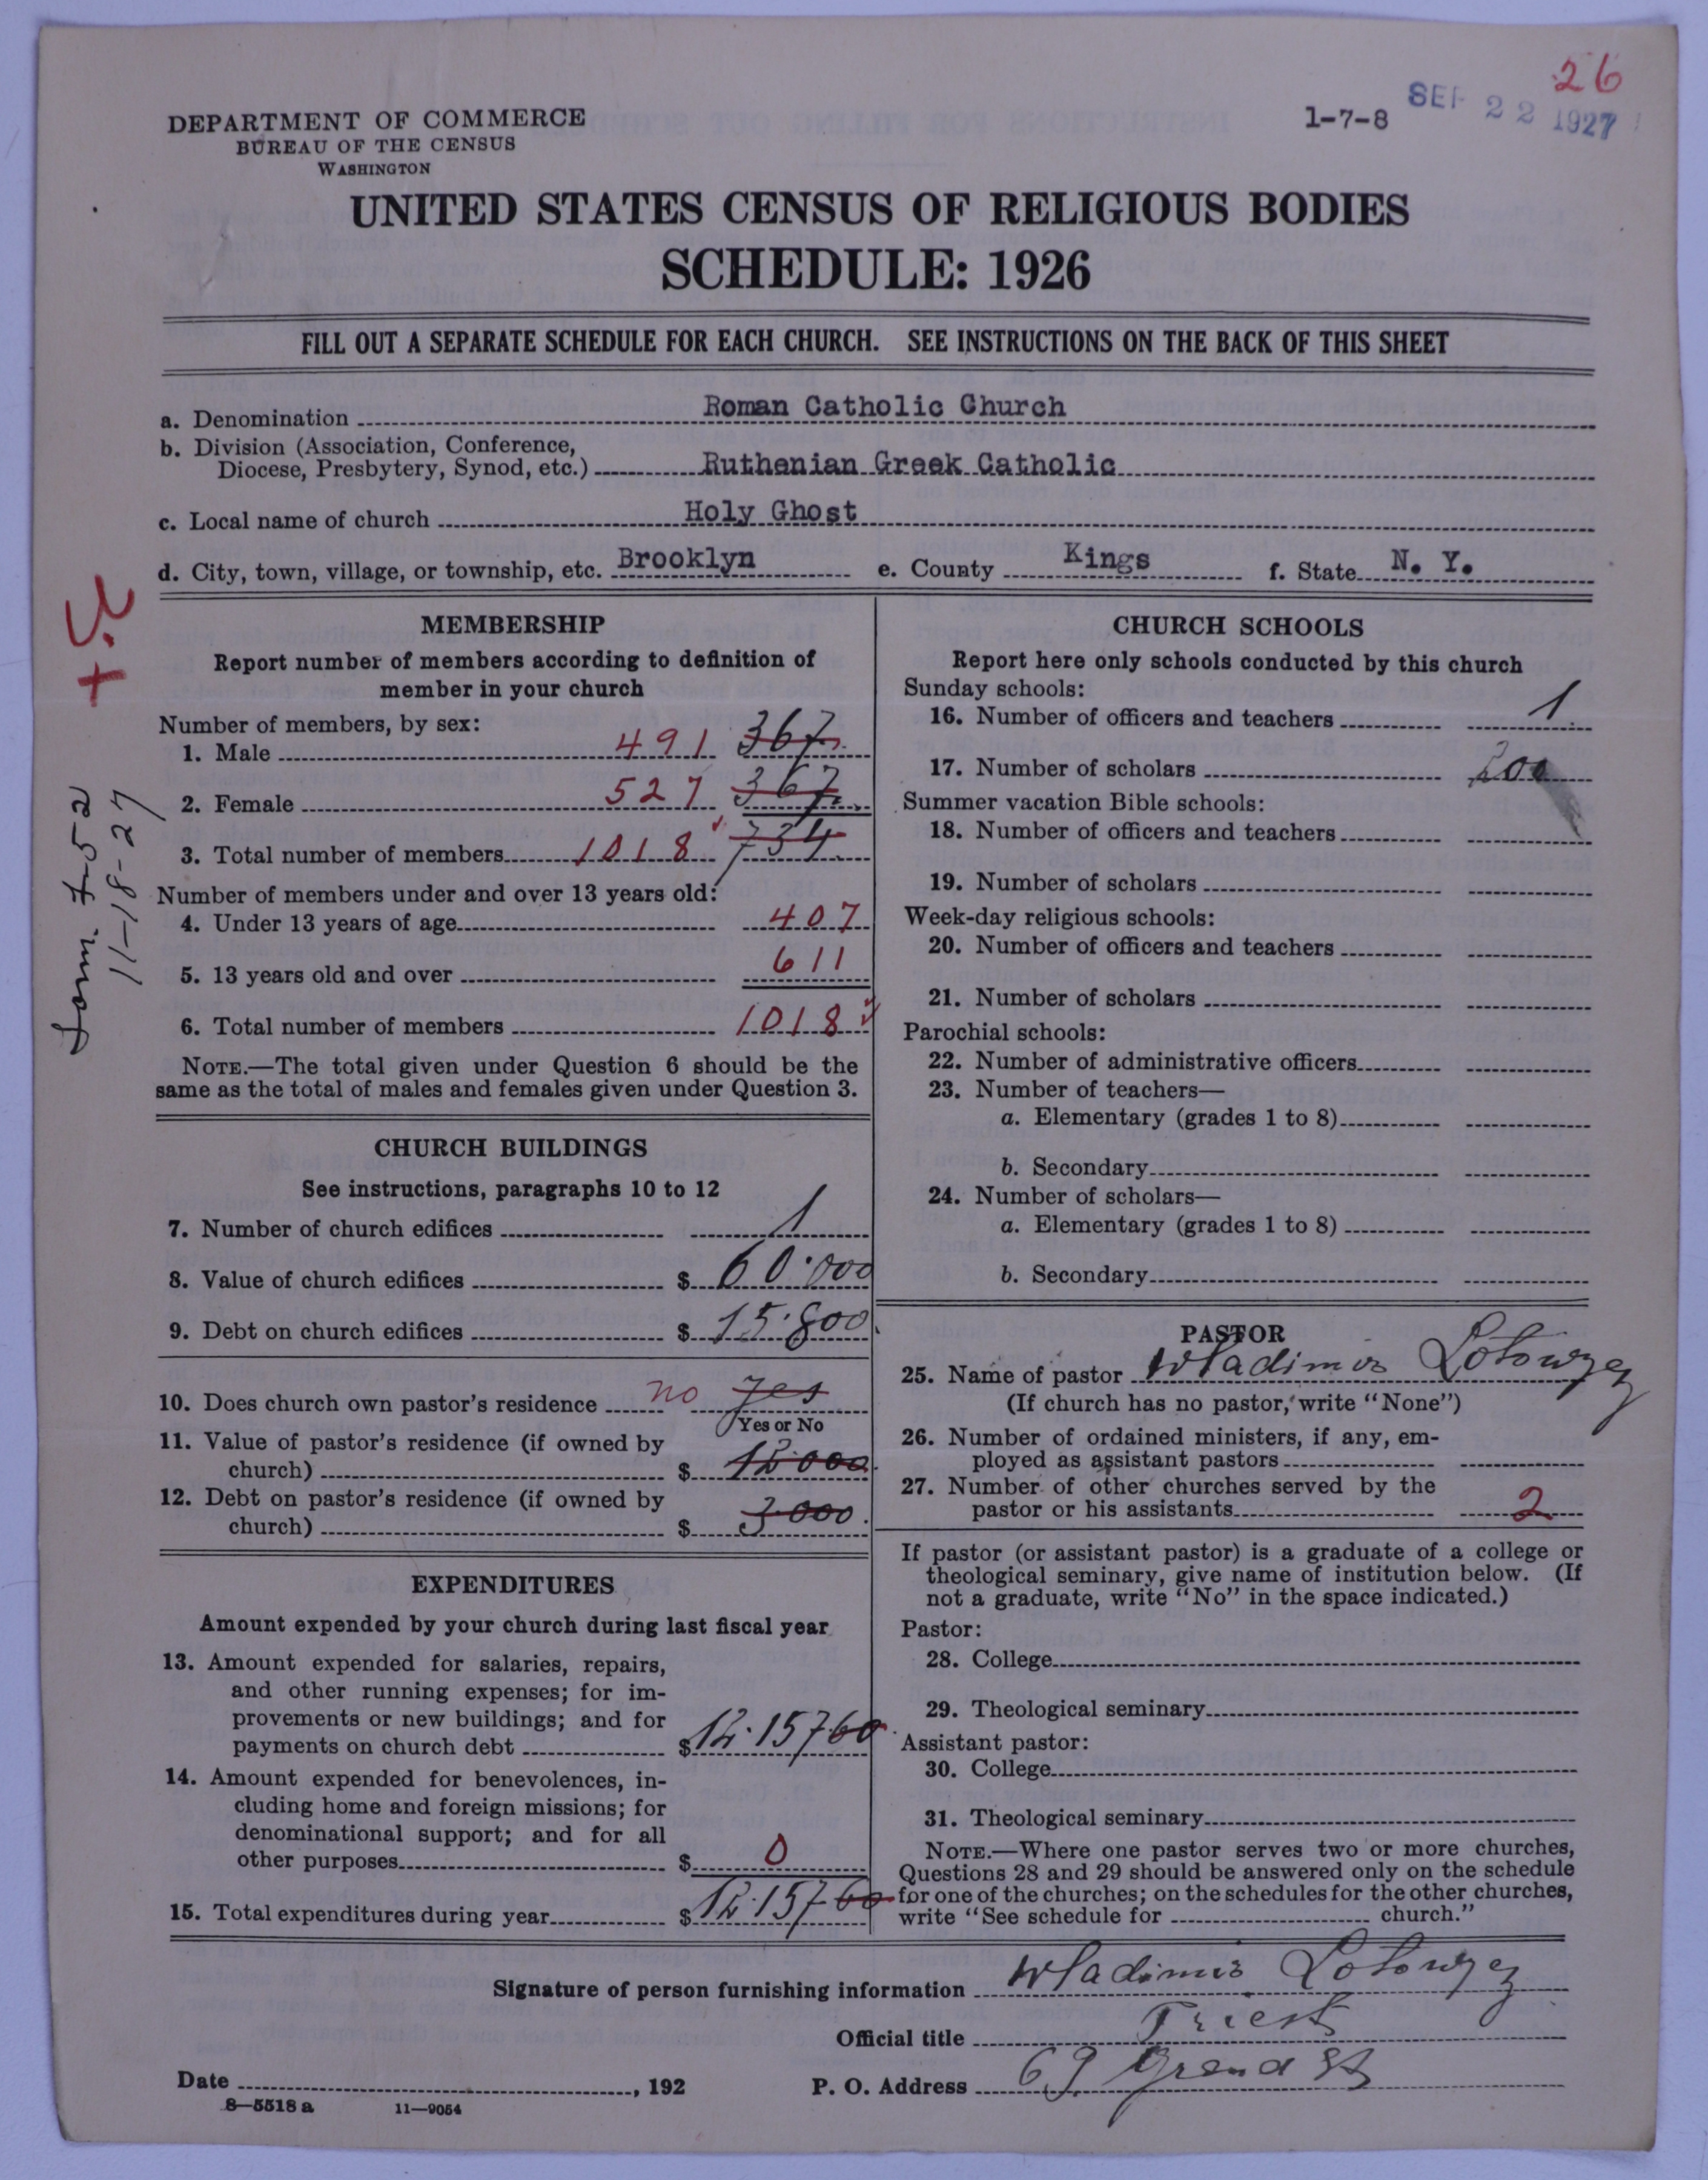 26
DEPARTMENT OF COMMERCE
BUREAU OF THE CENSUS
WASHINGTON
1-7-8
SEP 22 1927
UNITED STATES CENSUS OF RELIGIOUS BODIES
SCHEDULE: 1926
FILL OUT A SEPARATE SCHEDULE FOR EACH CHURCH. SEE INSTRUCTIONS ON THE BACK OF THIS SHEET
a. Denomination Roman Catholic Church
b. Division (Association, Conference,
Diocese, Presbytery, Synod, etc.) Ruthenian Greek Catholic
c. Local name of church Holy Ghost
d. City, town, village, or township, etc. Brooklyn e. County Kings f. State N. Y.
MEMBERSHIP
Report number of members according to definition of
member in your church
Number of members, by sex:
1. Male 491 367
2. Female 527 367
3. Total number of members 1018 734
Number of members under and over 13 years old:
4. Under 13 years of age 407
5. 13 years old and over 611
6. Total number of members 1018
NOTE.—The total given under Question 6 should be the
same as the total of males and females given under Question 3.
11-18-27
CHURCH BUILDINGS
See instructions, paragraphs 10 to 12
7. Number of church edifices 1
8. Value of church edifices $ 60.000
9. Debt on church edifices $ 15.800
10. Does church own pastor's residence no yes
Yes or No
11. Value of pastor's residence (if owned by
church) $ 12.000
12. Debt on pastor's residence (if owned by
church) $ 3.000
EXPENDITURES
Amount expended by your church during last fiscal year
13. Amount expended for salaries, repairs,
and other running expenses; for im-
provements or new buildings; and for
payments on church debt $ 12.157 60
14. Amount expended for benevolences, in-
cluding home and foreign missions; for
denominational support; and for all
other purposes $ 0
15. Total expenditures during year $ 12.157 60
CHURCH SCHOOLS
Report here only schools conducted by this church
Sunday schools:
16. Number of officers and teachers 1
17. Number of scholars 200
Summer vacation Bible schools:
18. Number of officers and teachers
19. Number of scholars
Week-day religious schools:
20. Number of officers and teachers
21. Number of scholars
Parochial schools:
22. Number of administrative officers
23. Number of teachers—
a. Elementary (grades 1 to 8)
b. Secondary
24. Number of scholars—
a. Elementary (grades 1 to 8)
b. Secondary
PASTOR
25. Name of pastor Wladimir Lotowycz
(If church has no pastor, write "None")
26. Number of ordained ministers, if any, em-
ployed as assistant pastors
27. Number of other churches served by the
pastor or his assistants 2
If pastor (or assistant pastor) is a graduate of a college or
theological seminary, give name of institution below. (If
not a graduate, write "No" in the space indicated.)
Pastor:
28. College
29. Theological seminary
Assistant pastor:
30. College
31. Theological seminary
NOTE.—Where one pastor serves two or more churches,
Questions 28 and 29 should be answered only on the schedule
for one of the churches; on the schedules for the other churches,
write "See schedule for church."
Signature of person furnishing information Wladimir Lotowycz
Official title Priest
Date , 192 P. O. Address 69 Grand St
8-5518 a 11-9054